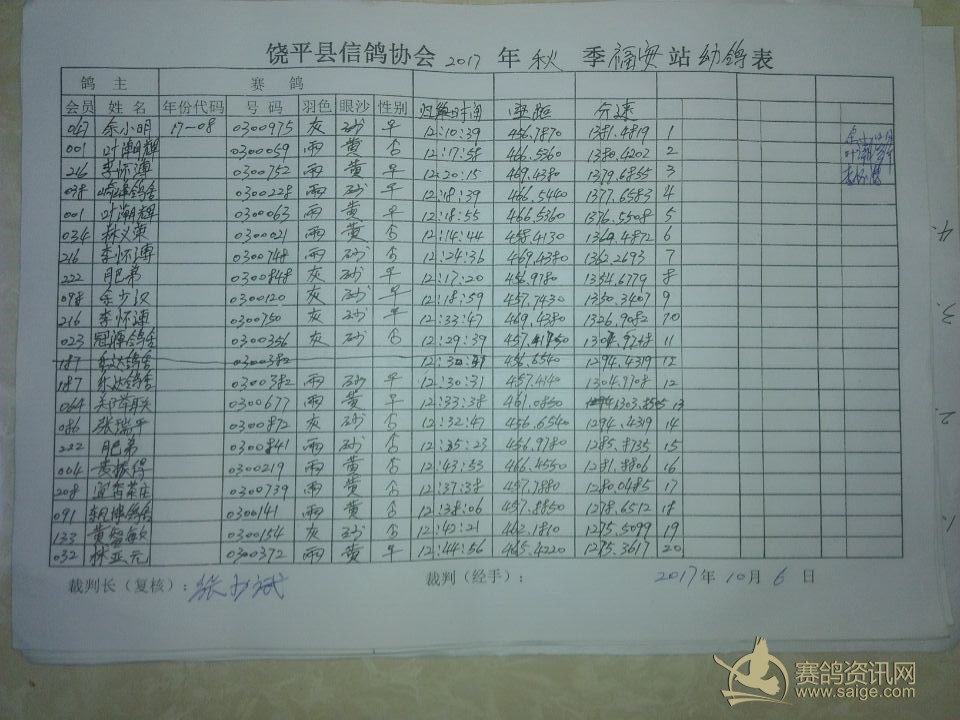 饶平县信鸽协会 2017 年 秋 季 福安 站 幼鸽 表
鸽 主 赛 鸽
会员 姓 名 年份代码 号 码 羽色 眼沙 性别 归巢时间 空距 分速
余小明 17-08 0300975 灰 砂 12:10:39 456.7870 1381.4819 1
001 叶潮辉 0300059 雨 黄 12:17:58 466.5360 1380.4202 2
216 李怀 0300752 雨 黄 12:20:15 469.4380 1379.6855 3
098 鸽舍 0300228 雨 砂 12:18:39 466.5440 1377.6583 4
001 叶潮辉 0300063 雨 黄 12:18:55 466.5360 1376.5508 5
034 林义荣 0300021 雨 黄 12:14:44 458.4130 1369.4872 6
216 李怀 0300748 雨 砂 12:24:36 469.4380 1362.2693 7
222 肥弟 0300848 灰 砂 12:17:20 456.9780 1354.6779 8
098 余少汉 0300120 灰 砂 12:18:59 457.7430 1350.3407 9
216 李怀 0300750 灰 砂 12:33:47 469.4380 1326.9082 10
023 鸽舍 0300356 灰 砂 12:29:39 11
187 东达鸽舍 0300382 456.6540 1294.4319
187 东达鸽舍 0300382 雨 砂 12:30:31 457.4140 1304.9708 12
064 0300677 雨 黄 12:33:38 461.0850 13
086 张瑞平 0300872 灰 砂 12:32:47 456.6540 1294.4319 14
222 肥弟 0300841 雨 砂 12:35:23 456.9780 1285.8735 15
004 黄振得 0300219 雨 黄 12:43:53 466.4550 1281.8806 16
208 宜香茶庄 0300739 雨 黄 12:37:38 457.7880 1280.0485 17
091 鸽舍 0300141 雨 黄 12:38:06 457.8850 1278.6512 18
133 黄智敏 0300154 灰 砂 12:42:21 462.1810 1275.5099 19
032 林亚元 0300372 雨 黄 12:44:56 465.4220 1275.3617 20
裁判长（复核）： 裁判（经手）： 2017 年 10 月 6 日
4.
3.
2.
1.
赛鸽资讯网
www.saige.com